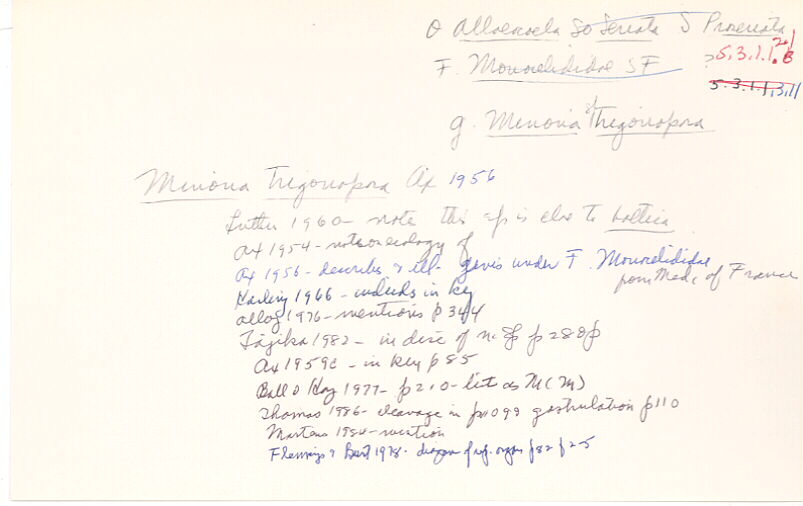 O Alloeocoela So Seriata S Proseriata
F. Monocelididae SF
?5.3.1.1.2.1.B
5.3.1.1.13.11
g. Minona of Trigonopora
Minona Trigonopora Ax 1956
Luther 1960 - note this sp is close to baltica
Ax 1954 - notes on ecology of
Ax 1956 - describes & ill. genis under F. Monocelididae from Med. of France
Karling 1966 - includes in key
1976 - mentions p 344
Tajika 1982 - in disc of n. sp p 280
Ax 1959 - in key p 85
Ball & Hay 1977 - p 210 - list as M (M)
Thomas 1986 - cleavage in p 1099 gastrulation p 110
Martens 1984 - mention
Flemings & Burt 1978 - diagram of rep. organs p 82 f 2-5